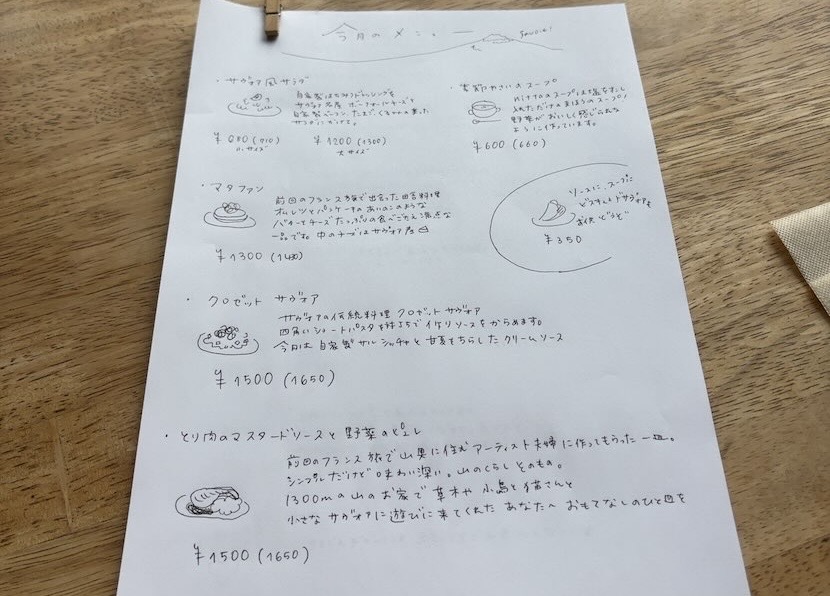 今月のメニュー
・サヴォア風サラダ
自家製はちみつドレッシングを
サヴォア名産 ボーフォールチーズと
自家製ベーコン、たまご、くるみの
サラダにかけて。
¥ (910)
小サイズ
¥1200 (1300)
大サイズ
・季節やさいのスープ
のスープは塩をむし
入れただけのまほうのスープ!
野菜がおいしく感じられる
ように作っています。
¥600 (660)
・マタファン
前回のフランス旅で出会った田舎料理
オムレツとパンケーキのあいのこのような
バターとチーズたっぷりの食べごたえ満点な
一品です。中のチーズはサヴォア産
¥1300 (1430)
ソースに、スープに
お供にどうぞ
¥350
・クロゼット サヴォア
サヴォアの伝統料理 クロゼット サヴォア
四角いショートパスタを粉から手作りソースをからめます。
今月は自家製サルシッチャと甘夏をちらしたクリームソース
¥1500 (1650)
・とり肉のマスタードソースと野菜のピュレ
前回のフランス旅で山奥に住むアーティスト夫婦に作ってもらった一皿。
シンプルだけど味わい深い。山のくらしそのもの。
1300mの山のお家で草木や小鳥と猫さんと
小さなサヴォアに遊びに来てくれたあなたへおもてなしのひと皿を
¥1500 (1650)